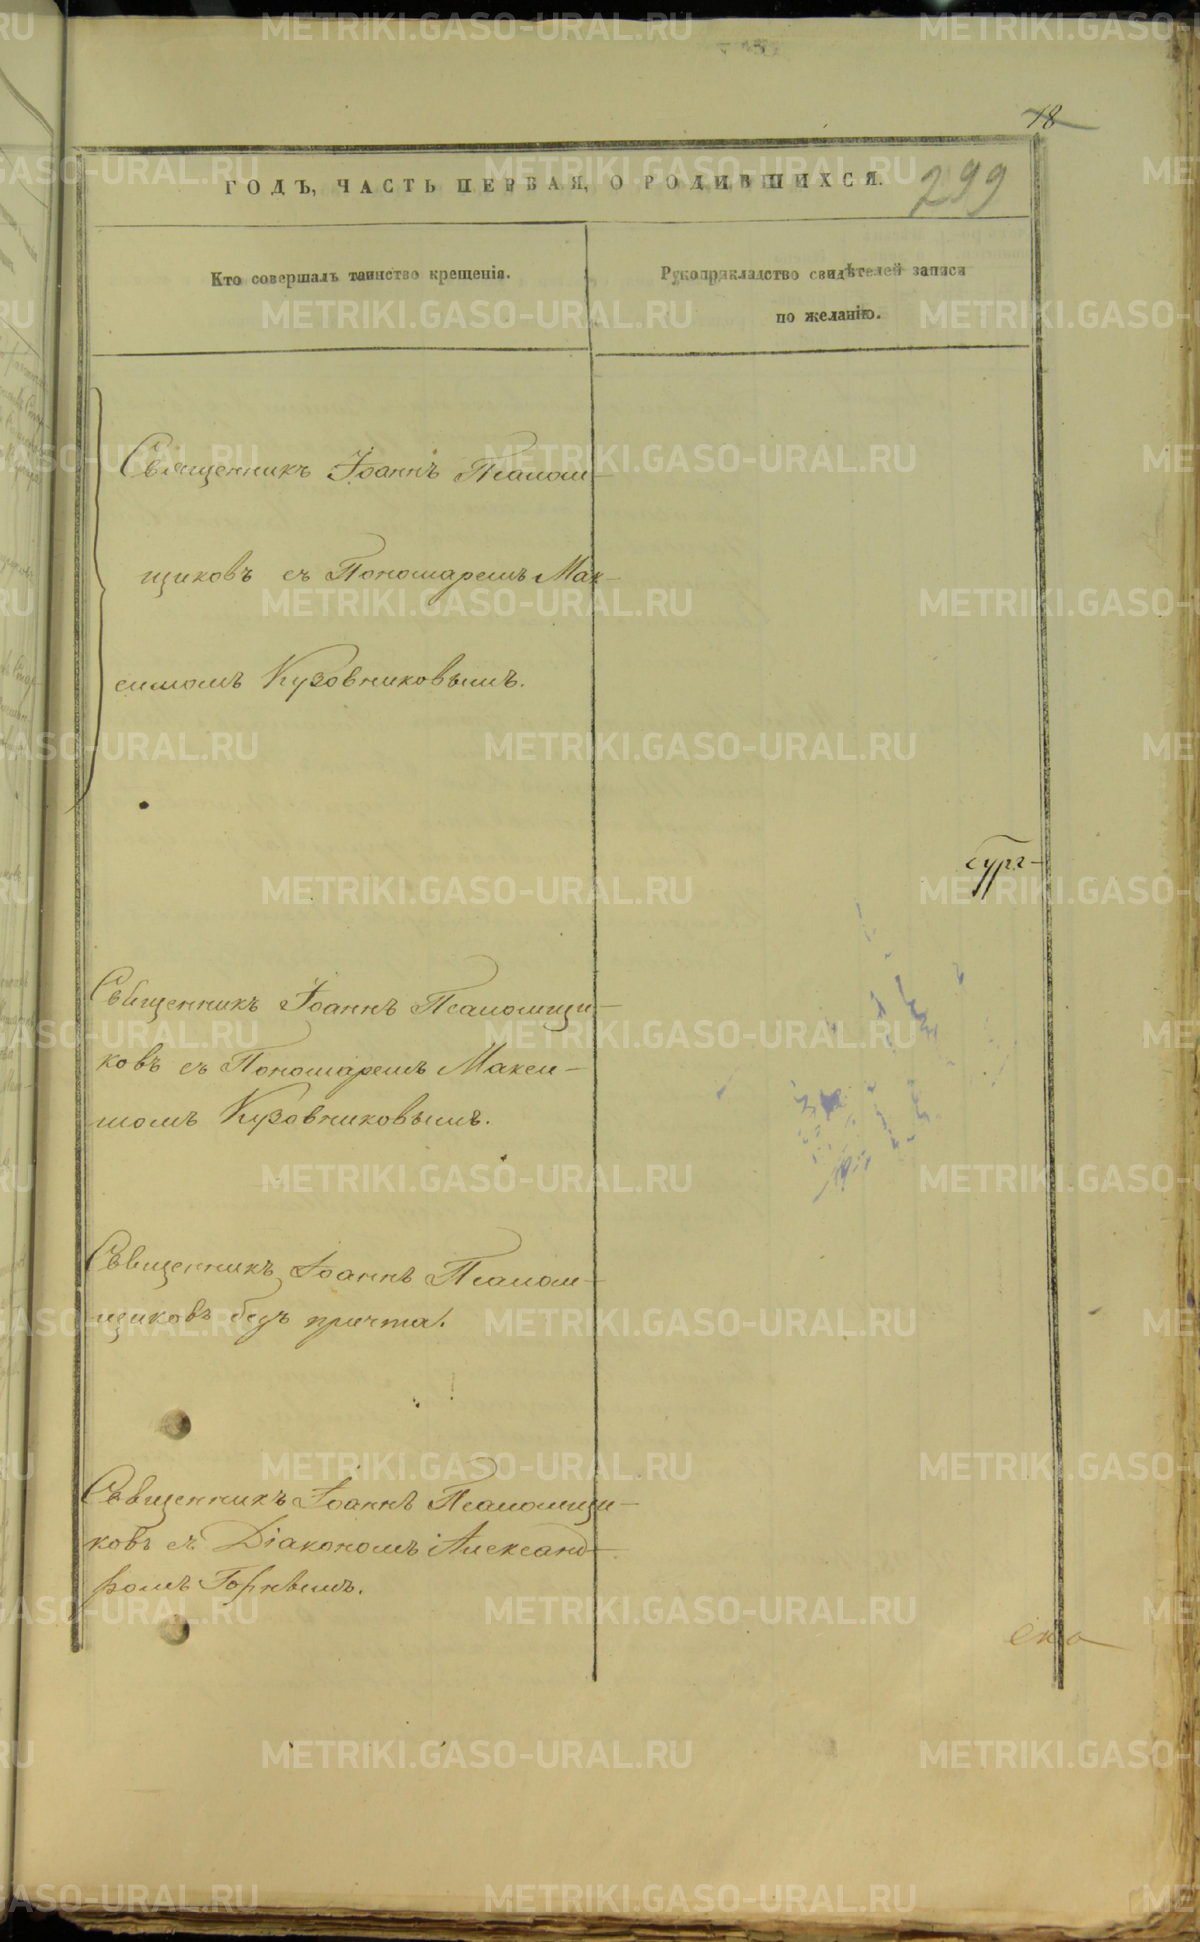 18
ГОДЪ, ЧАСТЬ ПЕРВАЯ, О РОДИВШИХСЯ.
299
Кто совершалъ таинство крещенія.
Рукоприкладство свидѣтелей записи
по желанію.
Священникъ Іоаннъ Псалом-
щиковъ съ Пономаремъ Мак-
симомъ Кузовниковымъ.
Священникъ Іоаннъ Псаломщи-
ковъ съ Пономаремъ Макси-
момъ Кузовниковымъ.
Священникъ Іоаннъ Псалом-
щиковъ безъ причта.
Священникъ Іоаннъ Псаломщи-
ковъ съ Діакономъ Александ-
ромъ
METRIKI.GASO-URAL.RU